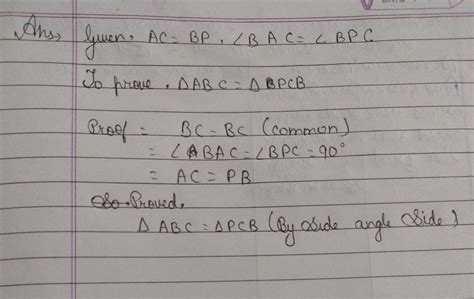 Ans, Given. AC = BP. ∠BAC = ∠BPC
To prove. ΔABC = ΔBPCB
Proof = BC = BC (common)
= ∠ABAC = ∠BPC = 90°
= AC = PB
So. Proved.
Δ ABC = ΔPCB (By side angle side)